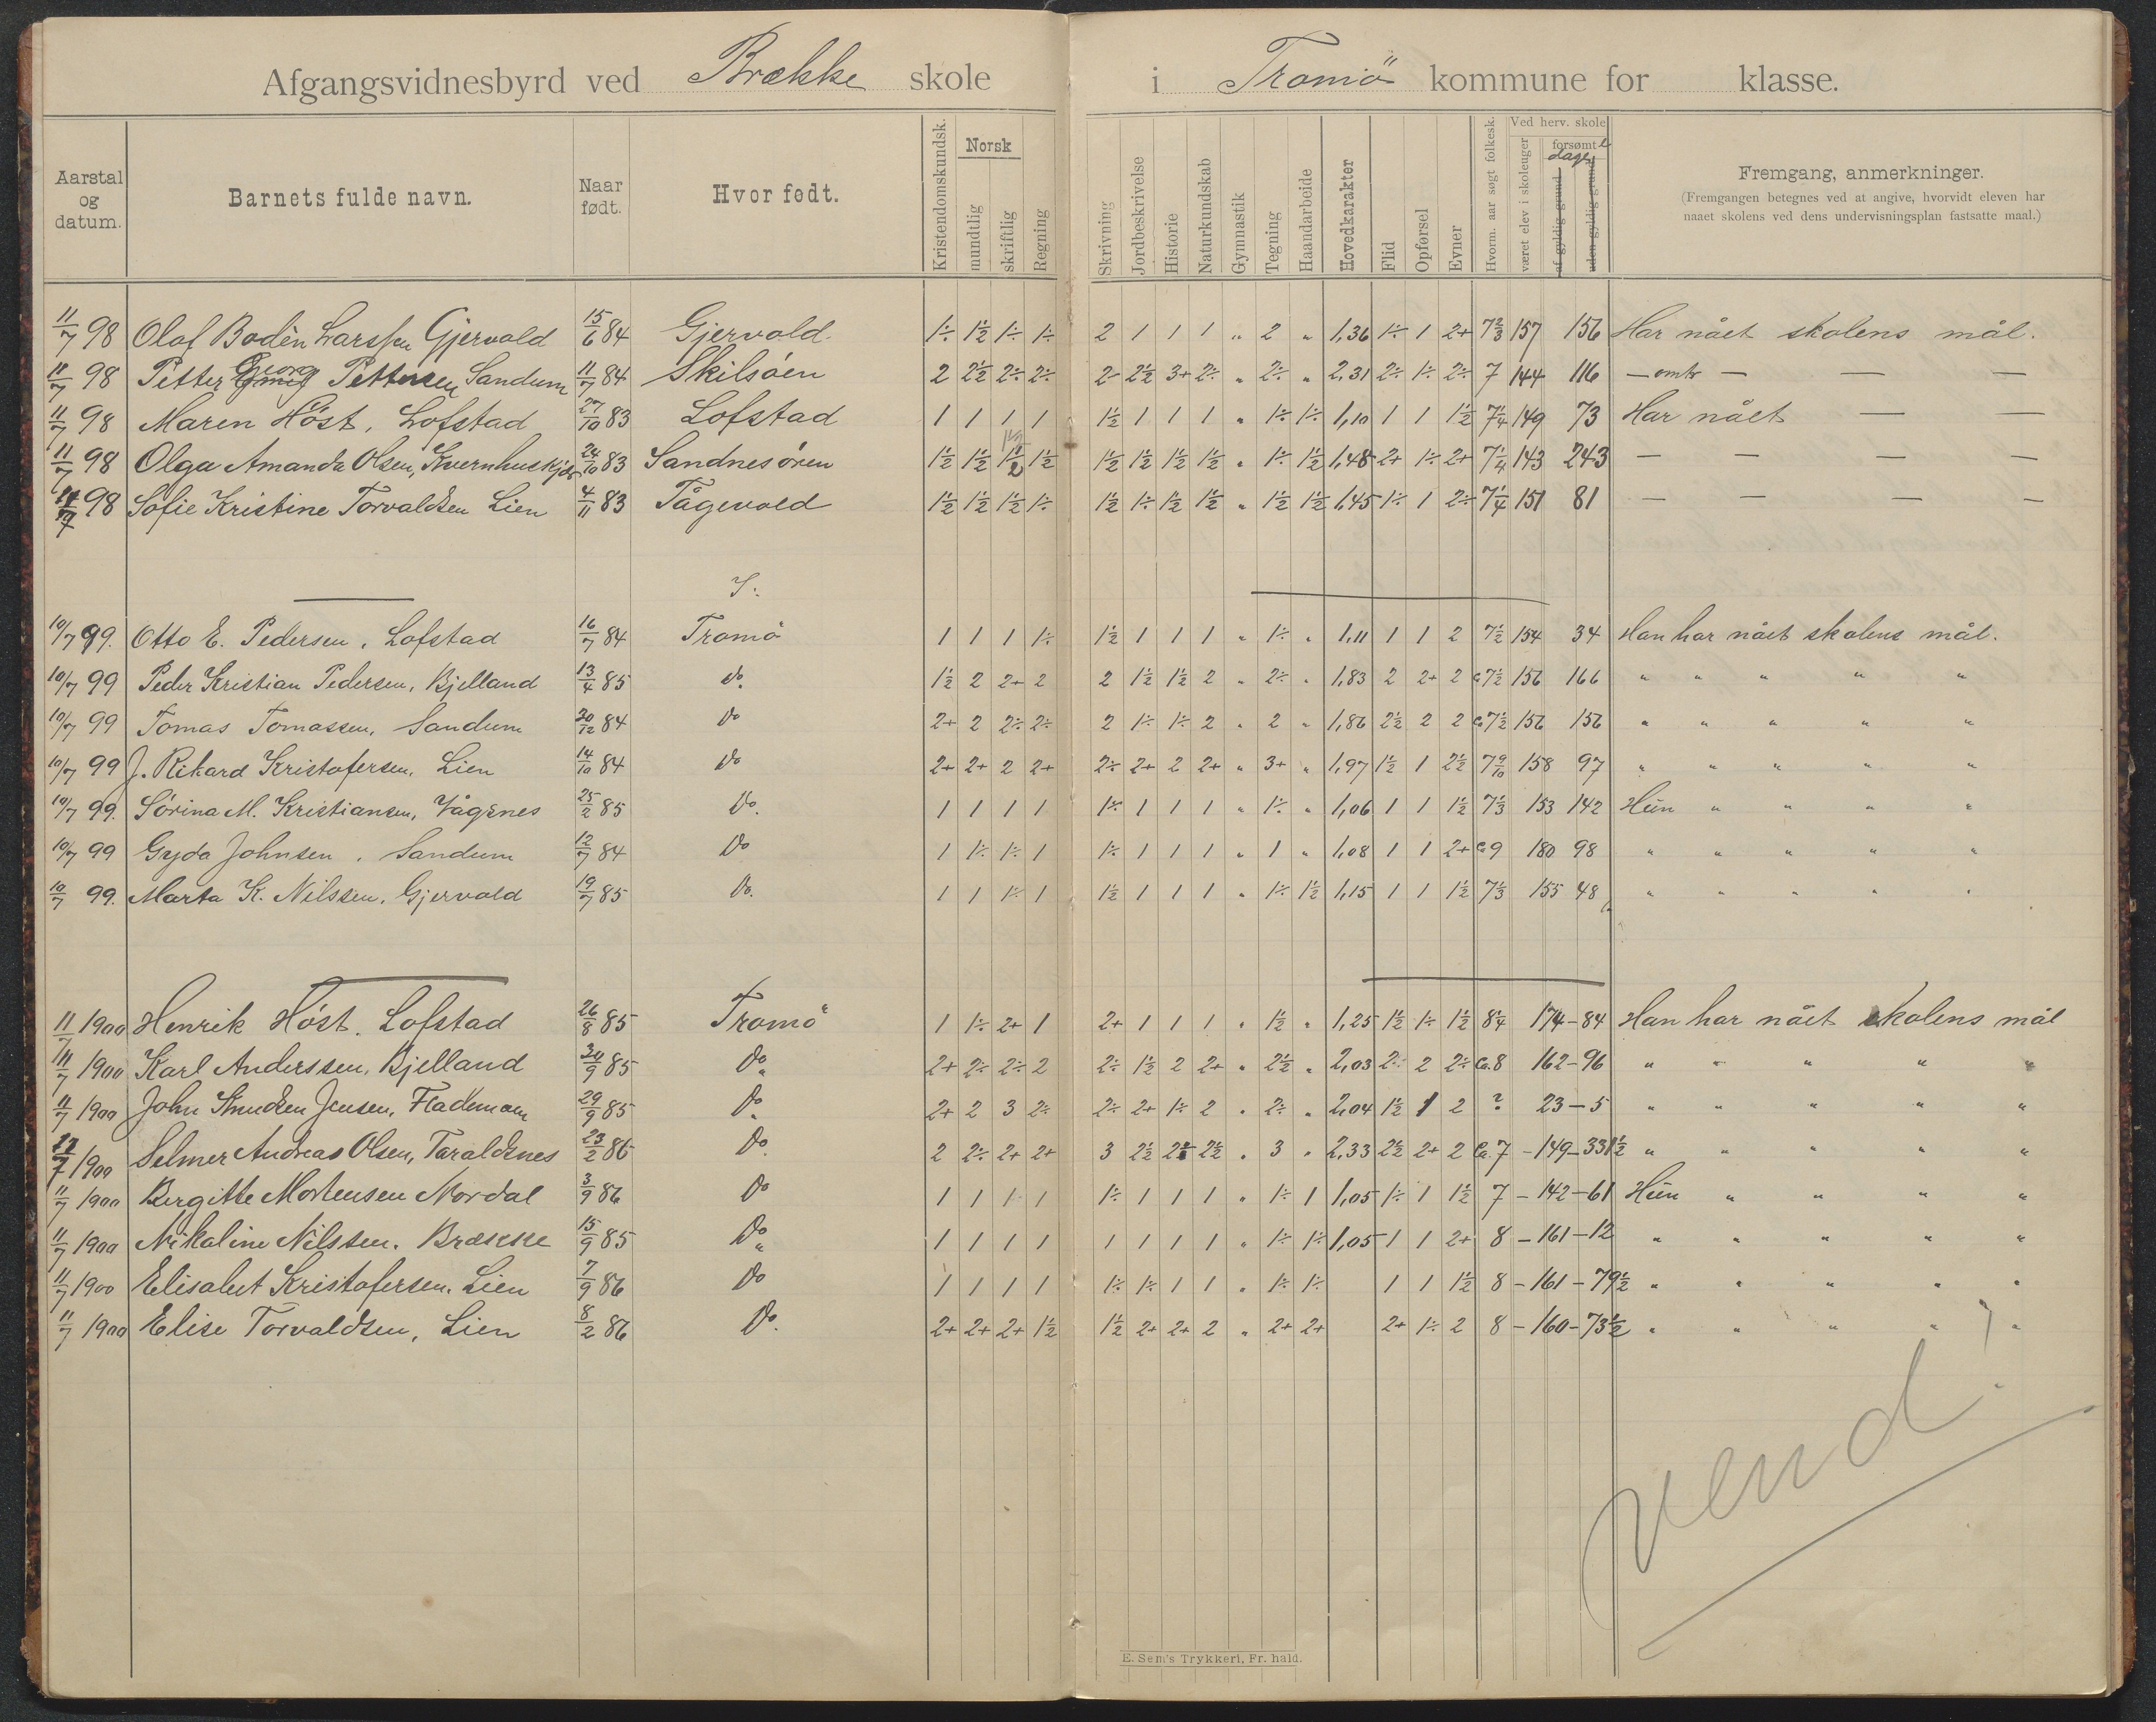 Afgangsvidnesbyrd ved Brække skole i Tromö kommune for klasse.
Aarstal og datum. Barnets fulde navn. Naar født. Hvor født. Kristendomskundsk. Norsk mundtlig skriftlig Regning Skrivning Jordbeskrivelse Historie Naturkundskab Gymnastik Tegning Haandarbeide Hovedkarakter Flid Opførsel Evner Hvorm. aar søgt folkesk. Ved herv. skole været elev i skoleuger forsømte dage af gyldig grund uden gyldig grund Fremgang, anmerkninger.
(Fremgangen betegnes ved at angive, hvorvidt eleven har
naaet skolens ved dens undervisningsplan fastsatte maal.)
11/7 98 Olaf Bodèn Larssen Gjervold 15/6 84 Gjervold. 1÷ 1½ 1÷ 1÷ 2 1 1 1 " 2 " 1,36 1÷ 1 2+ 7⅔ 157 156 Har nået skolens mål.
11/7 98 Petter Georg Pettersen Sandum 11/7 84 Skilsöen 2 2½ 2÷ 2÷ 2- 2½ 3+ 2÷ " 2÷ " 2,31 2÷ 1÷ 2÷ 7 144 116 — omtr — — —
11/7 98 Maren Höst, Lofstad 27/10 83 Lofstad 1 1 1 1 1½ 1 1 1 " 1÷ 1÷ 1,10 1 1 1½ 7¼ 149 73 Har nået — —
11/7 98 Olga Amanda Olsen, Kvernhuskjær 24/10 83 Sandnesören 1½ 1½ 1½ 1½ 1½ 1½ 1½ 1½ " 1÷ 1½ 1,48 2+ 1÷ 2+ 7¼ 143 243 — — — — —
11/7 98 Sofie Kristine Torvaldsen Lien 4/11 83 Tågevold 1½ 1½ 1½ 1÷ 1½ 1÷ 1½ 1½ " 1½ 1½ 1,45 1÷ 1 2÷ 7¼ 151 81 — — — — —
I:
10/7 99. Otto E. Pedersen, Lofstad 16/7 84 Tromö 1 1 1 1÷ 1½ 1 1 1 " 1÷ " 1,11 1 1 2 7½ 154 34 Han har nået skolens mål.
10/7 99 Peder Kristian Pedersen, Bjelland 13/4 85 do. 1½ 2 2+ 2 2 1½ 1½ 2 " 2÷ " 1,83 2 2+ 2 Ca 7½ 156 166 " " " " "
10/7 99 Tomas Tomassen, Sandum 20/12 84 Do 2+ 2 2÷ 2÷ 2 1÷ 1÷ 2 " 2 " 1,86 2½ 2 2 Ca 7½ 156 156 " " " " "
10/7 99 J. Rikard Kristofersen, Lien 14/10 84 Do 2+ 2+ 2 2+ 2÷ 2+ 2 2+ " 3+ " 1,97 1½ 1 2½ 7 9/10 158 97 " " " " "
10/7 99. Sörina M. Kristiansen, Vågsnes 25/2 85 Do. 1 1 1 1 1÷ 1 1 1 " 1÷ " 1,06 1 1 1½ 7⅓ 153 142 Hun " " " "
10/7 99 Gyda Johnsen, Sandum 12/7 84 Do 1 1÷ 1÷ 1 1÷ 1 1 1 " 1 " 1,08 1 1 2+ Ca 9 180 98 " " " " "
10/7 99. Marta K. Nilssen, Gjervold 19/7 85 Do. 1 1 1÷ 1 1½ 1 1 1 " 1÷ 1½ 1,15 1 1 1½ 7⅓ 155 48 " " " " "
11/7 1900 Henrik Höst. Lofstad 26/8 85 Tromö 1 1÷ 2+ 1 2+ 1 1 1 " 1½ " 1,25 1½ 1÷ 1½ 8¼ 174–84 Han har nået skolens mål
11/7 1900 Karl Anderssen, Bjelland 9 85 Do 2+ 2÷ 2÷ 2 2÷ 1½ 2 2+ " 2½ " 2,03 2÷ 2 2÷ Ca. 8 162–96 " " " " "
11/7 1900 John Knudsen Jensen, Flademoen 29/9 85 Do 2+ 2 3 2÷ 2÷ 2+ 1÷ 2 " 2÷ " 2,04 1½ 1 2 ? 23–5 " " " " "
7 1900 Selmer Andreas Olsen, Taraldsnes 23/2 86 Do. 2 2÷ 2+ 2+ 3 2½ 2½ 2½ " 3 " 2,33 2½ 2+ 2 Ca. 7 –149–331½ " " " " "
11/7 1900 Bergitte Mortensen Nordal 3/9 86 Do 1 1 1 1 1÷ 1 1 1 " 1÷ 1 1,05 1÷ 1 1½ 7 –142–61 Hun " " " "
11/7 1900 Nikoline Nilssen. Brække 15/9 85 Do 1 1 1 1 1 1 1 1 " 1÷ 1÷ 1,05 1 1 2+ 8 –161–12 " " " " "
11/7 1900 Elisabet Kristofersen. Lien 7/9 86 Do 1 1 1 1 1÷ 1÷ 1 1 " 1÷ 1÷ 1 1 1½ 8 –161–79½ " " " " "
11/7 1900 Elise Torvaldsen, Lien 8/2 86 Do. 2+ 2+ 2+ 1½ 1½ 2+ 2+ 2 " 2+ 2+ 2+ 1÷ 2 8 –160–73½ " " " " "
vend!
E. Sem's Trykkeri, Fr. hald.